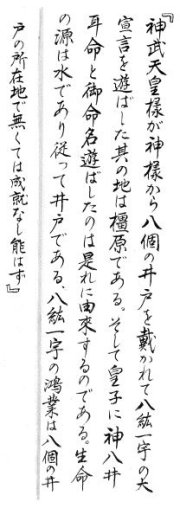 『神武天皇様が神様から八個の井戸を戴かれて八紘一宇の大
宣言を遊ばした其の地は橿原である。そして皇子に神八井
耳命と御命名遊ばしたのは是れに由来するのである。生命
の源は水であり従って井戸である、八紘一宇の鴻業は八個の井
戸の所在地で無くては成就なし能はず』